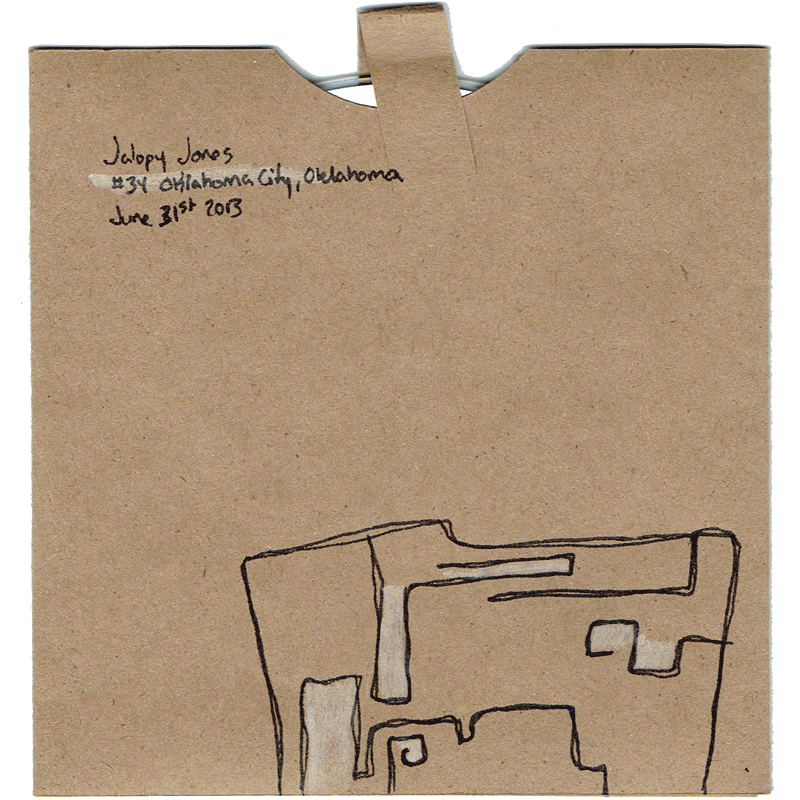 Jalopy Jones
#34 Oklahoma City, Oklahoma
June 31st 2013